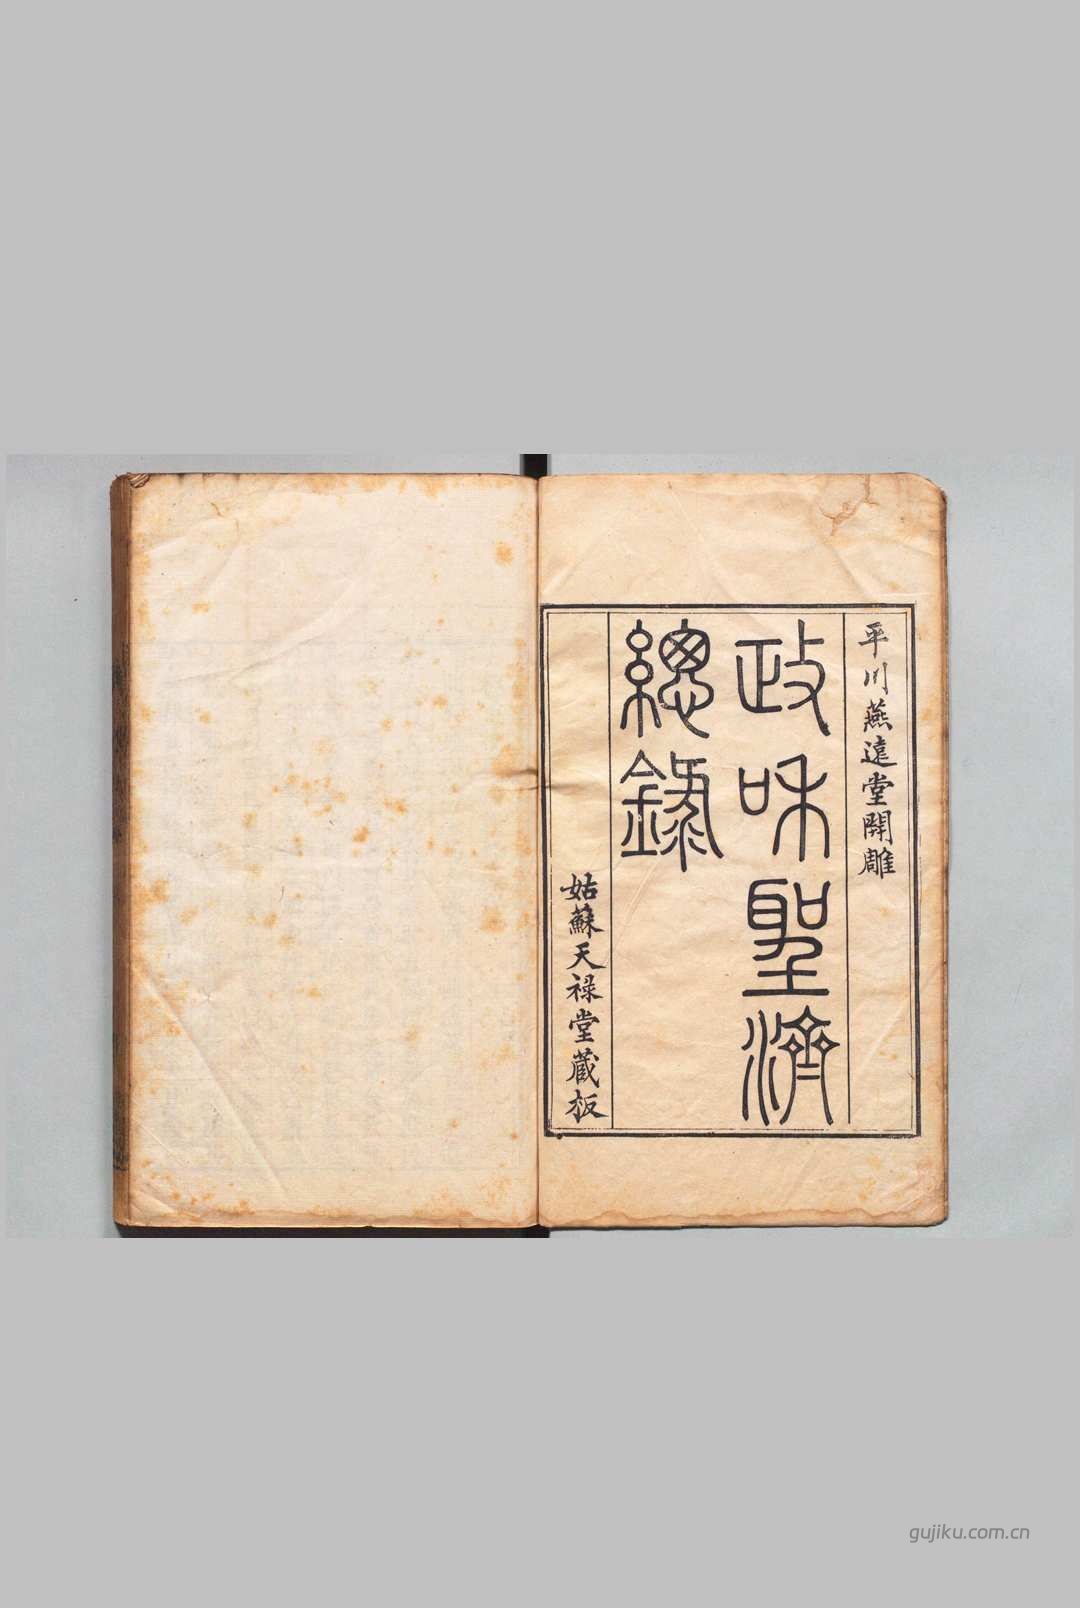 平川燕遠堂開雕
政和聖濟
總錄
姑蘇天祿堂藏板
gujiku.com.cn